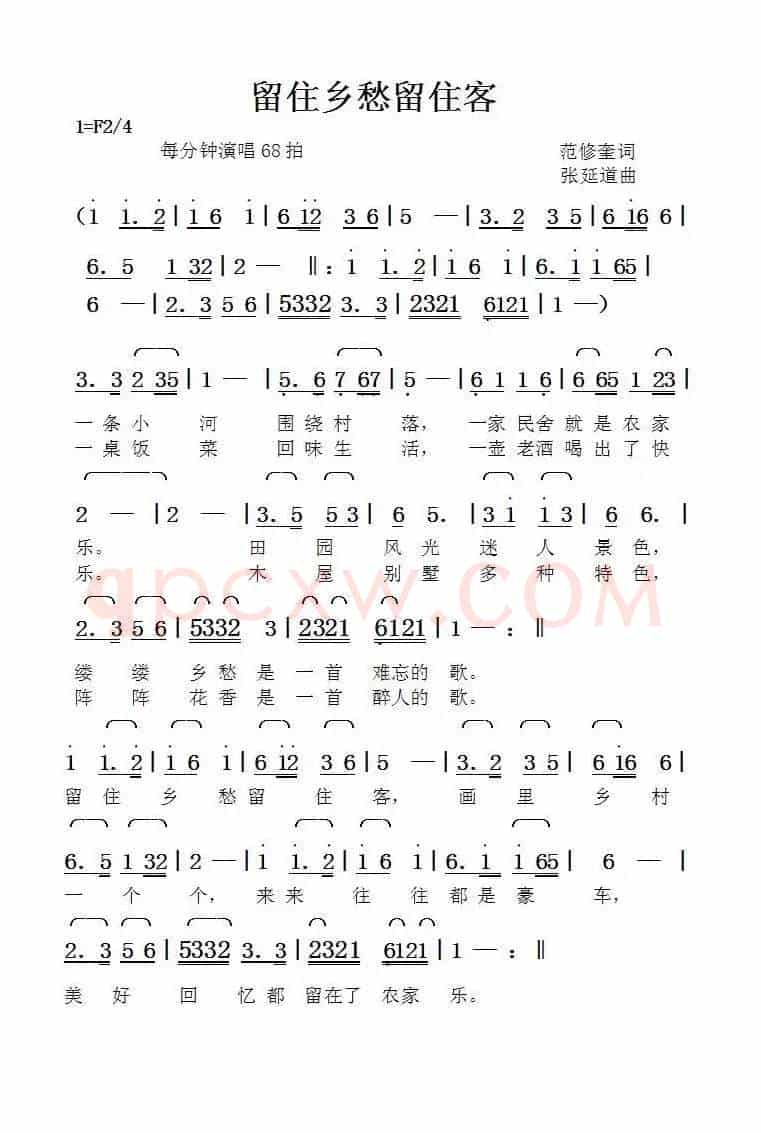 留住乡愁留住客
1=F2/4
每分钟演唱68拍 范修奎词
张延道曲
（1 1. 2|1 6 1|6 12 3 6|5 —|3. 2 3 5|6 16 6|
6. 5 1 32|2 — ‖：1 1. 2|1 6 1|6. 1 1 65|
6 —|2. 3 5 6|5332 3. 3|2321 6121|1 —）
3. 3 2 35|1 —|5. 6 7 67|5 —|6 1 1 6|6 65 1 23|
一条小 河 围绕村 落， 一家民舍就是农家
一桌饭 菜 回味生 活， 一壶老酒喝出了快
2 —|2 —|3. 5 5 3|6 6.|3 1 1 3|6 6.|
乐。 田 园 风光迷人景色，
乐。 木 屋 别墅多种特色，
2. 3 5 6|5332 3|2321 6121|1 — ：‖
缕 缕 乡愁是一首 难忘的歌。
阵 阵 花香是一首 醉人的歌。
1 1. 2|1 6 1|6 12 3 6|5 —|3. 2 3 5|6 16 6|
留 住 乡 愁留 住 客， 画 里 乡 村
6. 5 1 32|2 —|1 1. 2|1 6 1|6. 1 1 65| 6 —|
一 个 个，来来 往 往都是豪 车，
2. 3 5 6|5332 3. 3|2321 6121|1 — ：‖
美 好 回 忆都 留在了 农家 乐。
qpcxw.COM